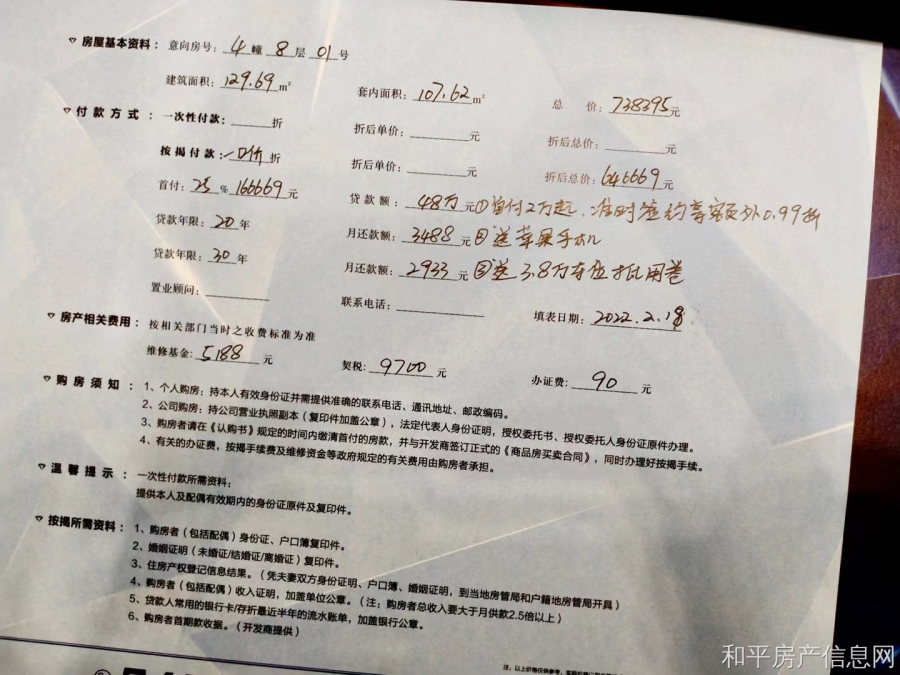 房屋基本资料：意向房号：4幢8层01号
建筑面积：129.69m² 套内面积：107.62m² 总价：738395元
付款方式：一次性付款：____折 折后单价：____元 折后总价：____元
按揭付款：一口价折 折后单价：____元 折后总价：646669元
首付：25%166669元 贷款额：48万元①首付2万起、准时签约享额外0.99折
贷款年限：20年 月还款额：3488元②送苹果手机
贷款年限：30年 月还款额：2933元③送3.8万车位抵用卷
置业顾问：____ 联系电话：____ 填表日期：2022.2.18
房产相关费用：按相关部门当时之收费标准为准
维修基金：5188元 契税：9700元 办证费：90元
购房须知：1、个人购房：持本人有效身份证并需提供准确的联系电话、通讯地址、邮政编码。
2、公司购房：持公司营业执照副本（复印件加盖公章），法定代表人身份证明，授权委托书、授权委托人身份证原件办理。
3、购房者请在《认购书》规定的时间内缴清首付的房款，并与开发商签订正式的《商品房买卖合同》，同时办理好按揭手续。
4、有关的办证费，按揭手续费及维修资金等政府规定的有关费用由购房者承担。
温馨提示：一次性付款所需资料：
提供本人及配偶有效期内的身份证原件及复印件。
按揭所需资料：1、购房者（包括配偶）身份证、户口簿复印件。
2、婚姻证明（未婚证/结婚证/离婚证）复印件。
3、住房产权登记信息结果。（凭夫妻双方身份证明、户口薄、婚姻证明，到当地房管局和户籍地房管局开具）
4、购房者（包括配偶）收入证明，加盖单位公章。（注：购房者总收入要大于月供款2.5倍以上）
5、贷款人常用的银行卡/存折最近半年的流水账单，加盖银行公章。
6、购房者首期款收据。（开发商提供）
注：以上价格仅供参考，
和平房产信息网